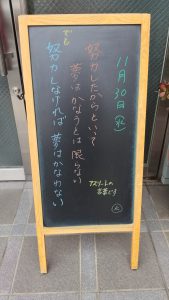 11月30日(水)
努力したからといって
夢はかなうとは限らない
でも
努力しなければ夢はかなわない
アスリートの
言葉です